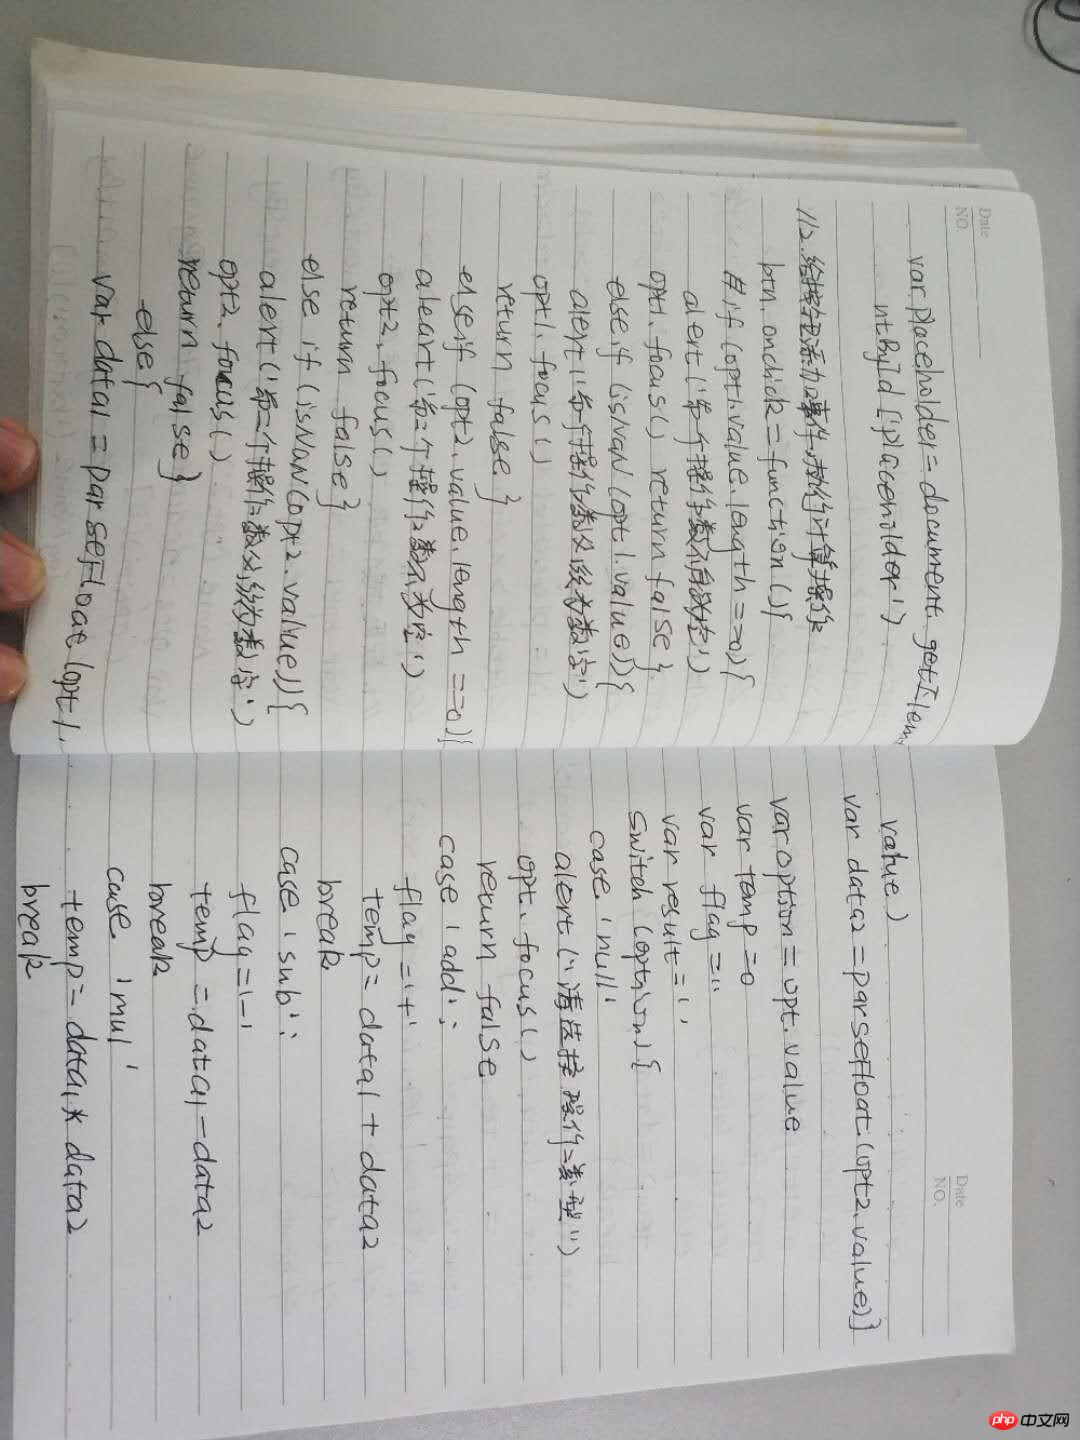 Date
NO.
var placeholder = document.getElem
ntById ('placeholder')
//2.给按钮添加事件,执行计算操作
btn.onclick = function(){
if (opt1.value.length == 0){
alert('第一个操作数不能为空')
opt1.focus() return false}
else if (isNaN(opt1.value)){
alert('第一个操作数必须为数字')
opt1.focus()
return false}
else if (opt2.value.length ==0){
aleart('第二个操作数不为空')
opt2.focus()
return false}
else if (isNaN(opt2.value)){
alert('第二个操作数必须为数字')
opt2.focus()
return false}
else{
var data1 = parseFloat(opt1.
Date
NO.
value)
var data2 = parseFloat(opt2.value)}
var option = opt.value
var temp = 0
var flag = ''
var result = ''
switch (option){
case 'null'
alert('请选择操作类型')
opt.focus()
return false
case 'add':
flag = '+'
temp = data1 + data2
break
case 'sub':
flag = '-'
temp = data1 - data2
break
case 'mul'
temp = data1 * data2
break
php 中文网